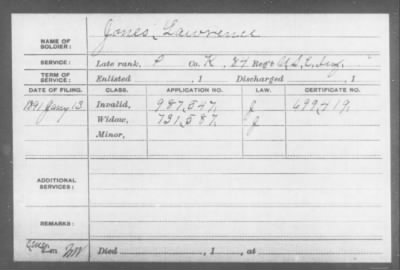 NAME OF SOLDIER: Jones, Lawrence
SERVICE: Late rank, P Co. K, 84 Reg't U.S.C. Inf.
TERM OF SERVICE: Enlisted , 1 Discharged , 1
DATE OF FILING. CLASS. APPLICATION NO. LAW. CERTIFICATE NO.
1891 Jany 13 Invalid, 987,547 J 699,419
Widow, 731,587 J
Minor,
ADDITIONAL SERVICES:
REMARKS:
Died , 1 , at